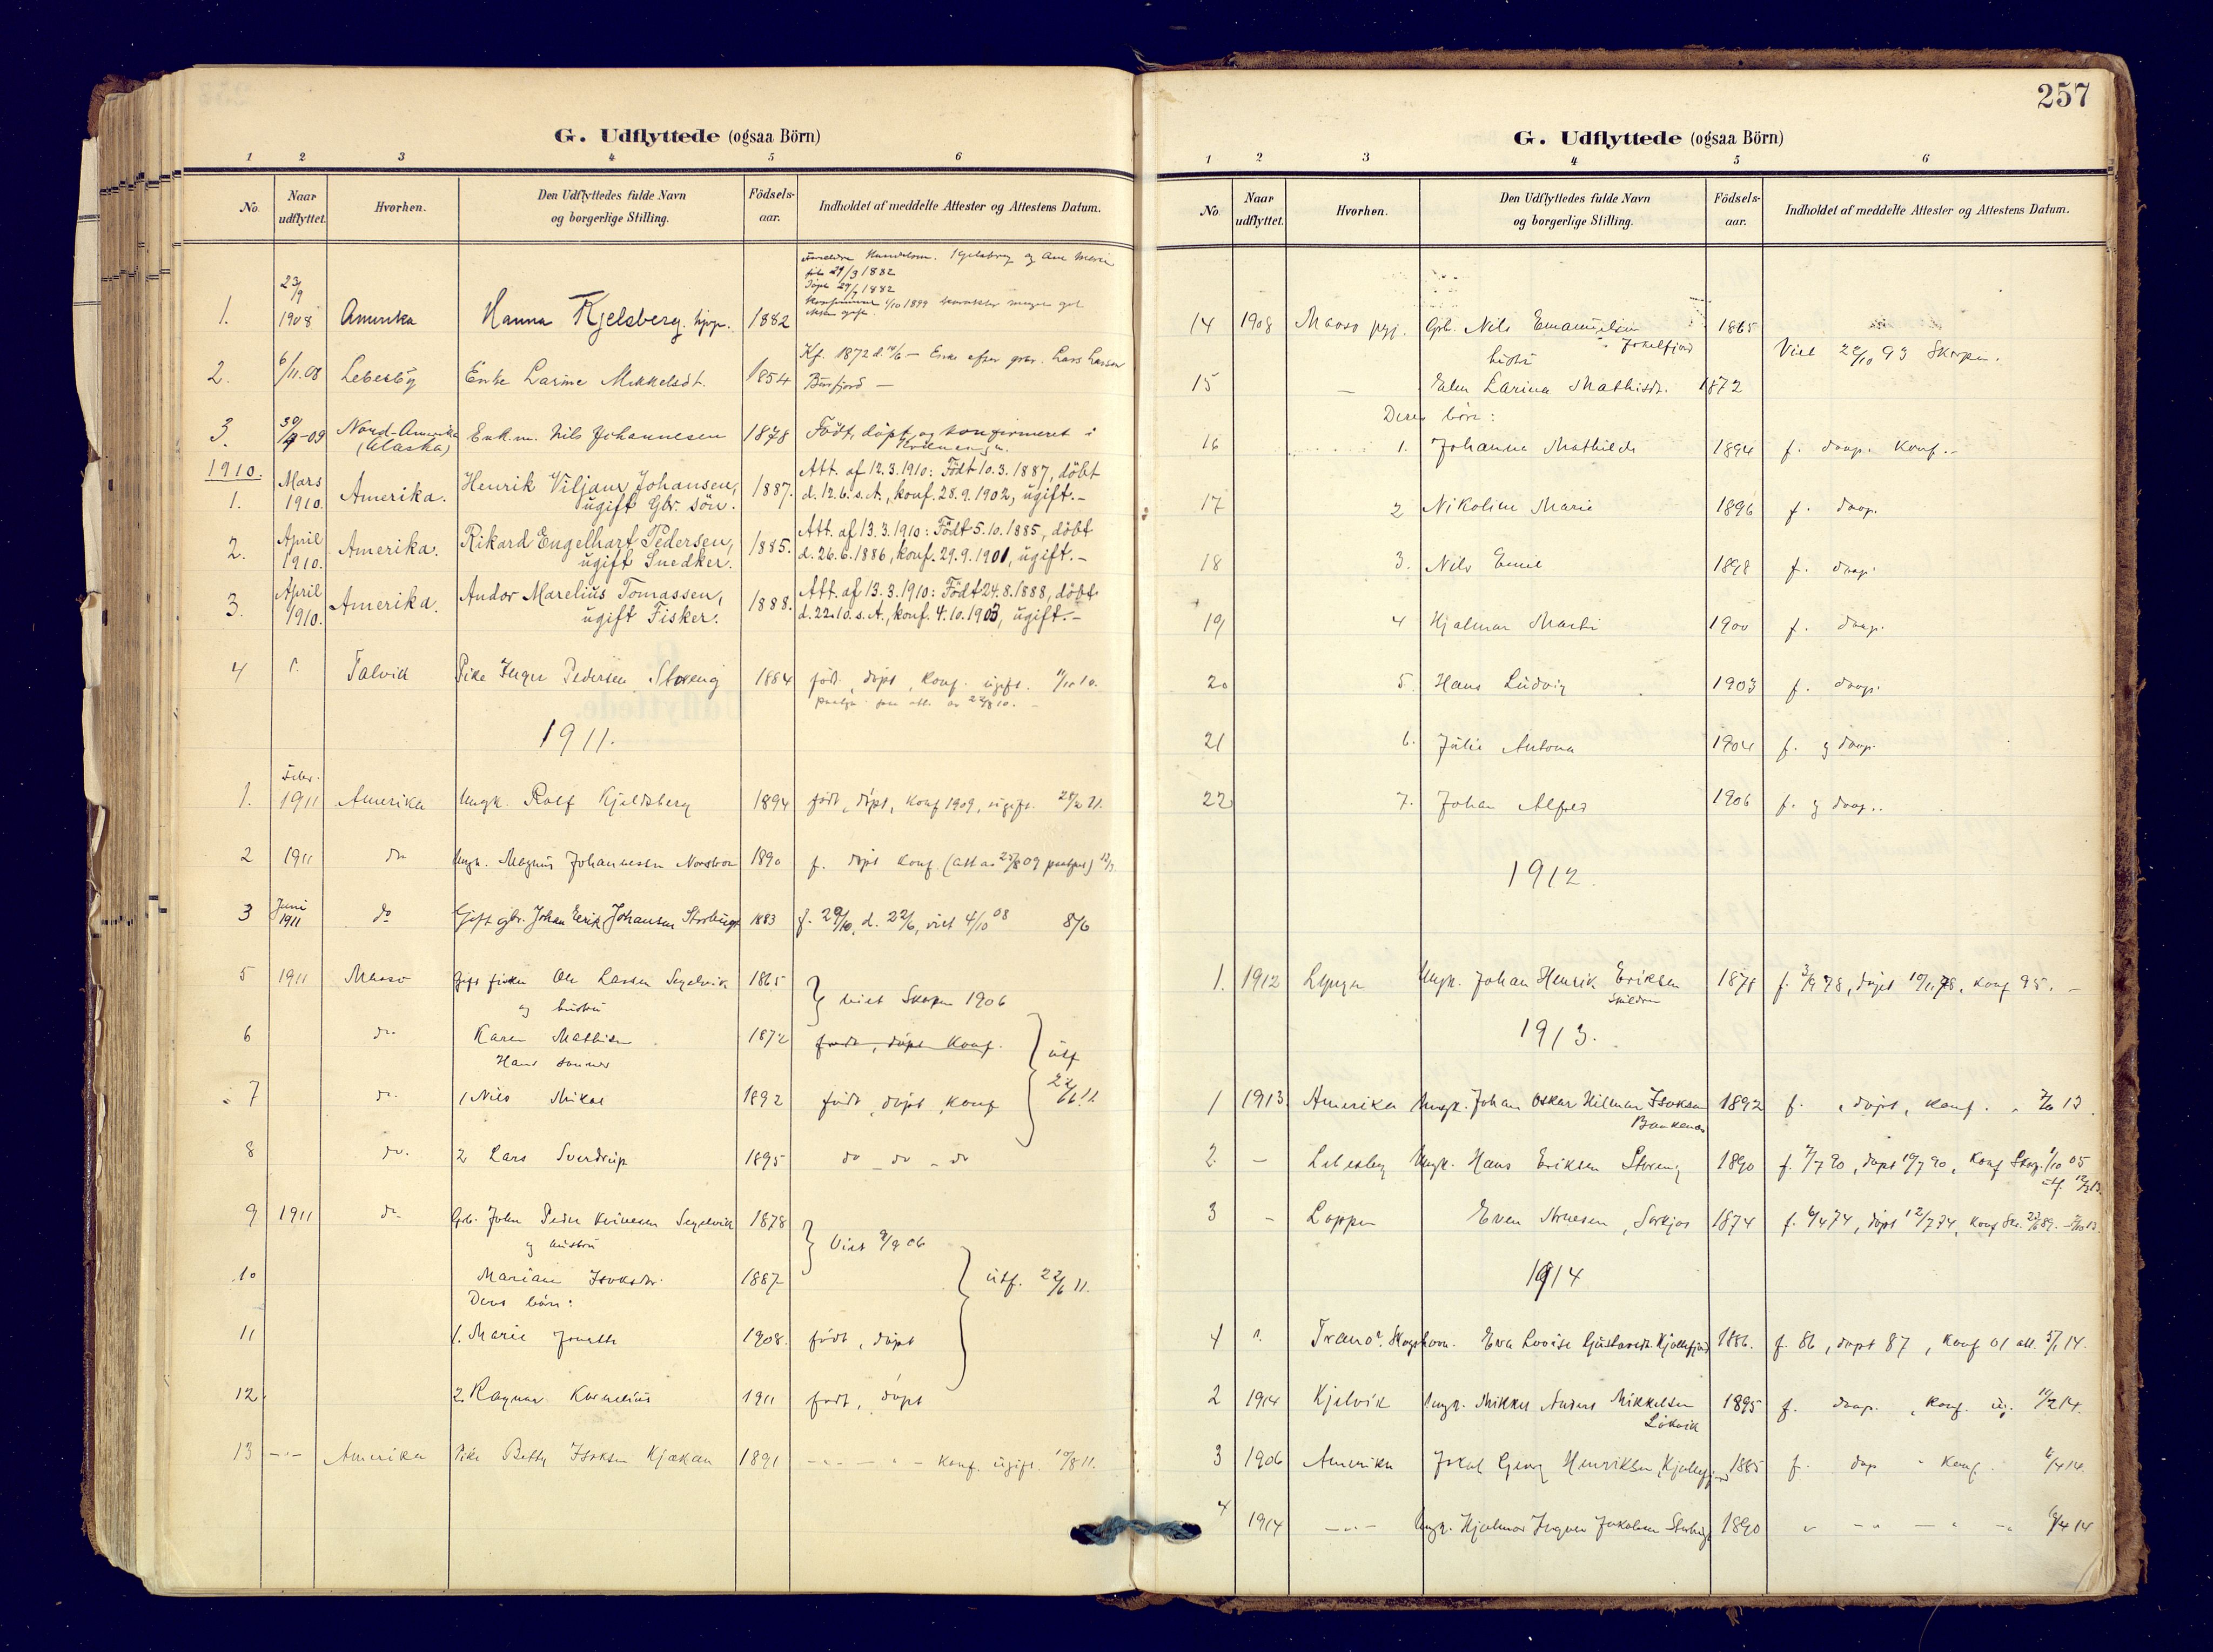 G. Udflyttede (ogsaa Börn)
1 2 3 4 5 6
No. Naar udflyttet. Hvorhen. Den Udflyttedes fulde Navn og borgerlige Stilling. Födsels-aar. Indholdet af meddelte Attester og Attestens Datum.
født 29/3 1882
1. 23/9 1908 Amerika Hanna Kjelsberg 1882
2. 6/11.08 Lebesby Enke Larine Mikkelsdt. 1854 Kf. 1872 Enke efter gbr. Lars Larsen
Burfjord —
3. 30/4-09 Nord-Amerika Enk.m. Nils Johannesen 1878 Födt, döpt og konfirmeret i
(Alaska)
1910.
1. Mars 1910. Amerika. Henrik Viljam Johansen, 1887. Att. af 12.3.1910: Födt 10.3.1887, döbt
ugift Gbr. sön. d. 12.6. s. A., konf. 28.9.1902, ugift.-
2. April 1910. Amerika. Rikard Engelhart Pedersen, 1885. Att. af 13.3.1910: Födt 5.10.1885, döbt
ugift Snedker. d. 26.6.1886, konf. 29.9.1901, ugift.-
3. April 1910. Amerika. Andor Marelius Tomassen, 1888. Att. af 13.3.1910: Födt 24.8.1888, döbt
ugift Fisker. d. 22.10. s. A., konf. 4.10.1903, ugift.-
4 Talvik Pike Inger Pedersen Storeng 1884 född, döpt, konf. ugift.
1911.
1. Febr. 1911 Amerika Ungk. Rolf Kjeldsberg 1894 född, döpt, konf 1909, ugift.
2 1911 do Ungk. Magnus Johannessen 1890 f. döpt konf
3 Juni 1911 do Gift gbr. Johan Erik Johansen Storbugt 1883 f. 29/10, d. 22/6, viet 4/10 08 8/6
5 1911 Maasø Gift fisker Ole Larsen Segelvik 1865 viet Skorpen 1906
og hustru
6 do. Karen Mathisen 1872 født, döpt konf.
Hans sönner utf 22/6 11.
7 do. 1 Nils Mikal 1892 född, döpt, konf
8 do. 2 Lars Sverdrup 1895 do - do - do
9 1911 do Grb. John Peder Segelvik 1878 Viet 9/9 06
og hustru
10 Marian Isaksdtr. 1887 utf. 22/6 11.
Deres börn:
11 1. Marie 1908. född, döpt
12. 2. Ragnar Kornelius 1911 född, döpt
13 Amerika Pike Betty Isaksen Kjækan 1891 konf. ugift. 10/8 11.
257
G. Udflyttede (ogsaa Börn)
1 2 3 4 5 6
No. Naar udflyttet. Hvorhen. Den Udflyttedes fulde Navn og borgerlige Stilling. Födsels-aar. Indholdet af meddelte Attester og Attestens Datum.
14 1908 Maasø pgj. Grb. Nils 1865 Viet 22/10 93 Skorpen.
Jokelfjord
hustru
15 — Elen Larina Mathisdt. 1872
Deres börn:
16 1. Johanna Mathilde 1894 f. døop. konf.-
17 2 Nikoline Marie 1896 f. døop.
18 3. Nils Emil 1898 f. døop.
19 4 Hjalmar Martin 1900 f. døop.
20 5. Hans Ludvig 1903 f. døop.
21 6. Julie Antona 1904 f. og døop.
22 7. Johan Alfred 1906 f. og døop..
1912.
1. 1912 Lyngen Ungk. Johan Henrik Eriksen 1878 f. 3/9 78, döpt 10/11 78, konf 95. -
1913.
1 1913. Amerika Ungk. Johan Oskar Hilmar Isaksen 1892 f. , döpt, konf.
2 — Lebesby Ungk. Hans Eriksen Storeng 1890 f. 7/7 90, döpt 19/7 90, konf Skorp. 1/10 05
3 — Loppen Even Arnesen, Sørkjos 1874 f. 6/4 74, döpt 12/7 74, konf Sk.
1914
1 Tranø. Skogshavn. Eva Lovise Gustavsdt. Kjøllefjord 1886. f. 86, döpt 87, konf 01 att. 5/1 14.
2 1914 Kjelvik Ungk. Mikkel Anders Mikkelsen 1895 f. døop. , konf. ug.
Låkvik
3 1906 Amerika Georg Henriksen, 1885 f. døp konf.
4 1914 Ungk. Hjalmar Ingvar Jakobsen 1890